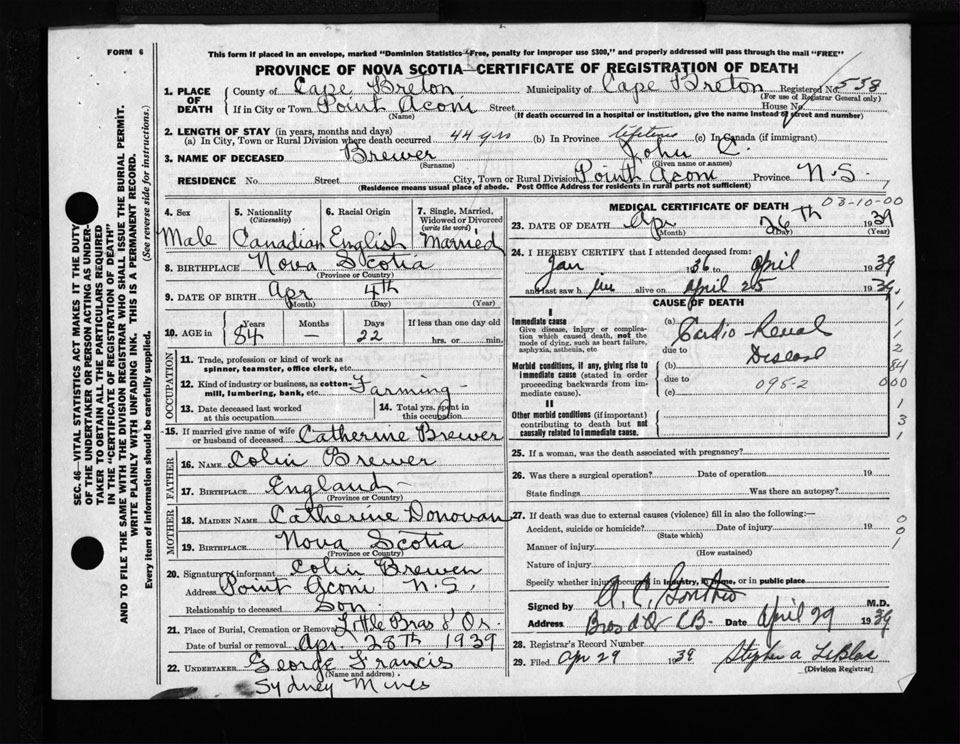 FORM 6
This form if placed in an envelope, marked "Dominion Statistics—Free, penalty for improper use $300," and properly addressed will pass through the mail "FREE"
PROVINCE OF NOVA SCOTIA—CERTIFICATE OF REGISTRATION OF DEATH
1. PLACE OF DEATH
County of Cape Breton Municipality of Cape Breton Registered No. 538
(For use of Registrar General only)
If in City or Town Point Aconi Street House No.
(Name) (If death occurred in a hospital or institution, give the name instead of street and number)
2. LENGTH OF STAY (in years, months and days)
(a) In City, Town or Rural Division where death occurred 44 yrs (b) In Province lifetime (c) In Canada (if immigrant)
3. NAME OF DECEASED Brewer John C.
(Surname) (Given name or names)
RESIDENCE No. Street City, Town or Rural Division Point Aconi Province N.S.
(Residence means usual place of abode. Post Office Address for residents in rural parts not sufficient)
4. Sex 5. Nationality (Citizenship) 6. Racial Origin 7. Single, Married, Widowed or Divorced (write the word)
Male Canadian English Married
8. BIRTHPLACE Nova Scotia
(Province or Country)
9. DATE OF BIRTH Apr 4th
(Month) (Day) (Year)
10. AGE in Years Months Days If less than one day old
84 — 22 hrs. or min.
OCCUPATION
11. Trade, profession or kind of work as spinner, teamster, office clerk, etc.
12. Kind of industry or business, as cotton-mill, lumbering, bank, etc. Farming
13. Date deceased last worked at this occupation
14. Total yrs. spent in this occupation
15. If married give name of wife or husband of deceased Catherine Brewer
FATHER
16. NAME Colin Brewer
17. BIRTHPLACE England
(Province or Country)
MOTHER
18. MAIDEN NAME Catherine Donovan
19. BIRTHPLACE Nova Scotia
(Province or Country)
20. Signature of informant Colin Brewer
Address Point Aconi N.S.
Relationship to deceased Son
21. Place of Burial, Cremation or Removal Little Bras d'Or
Date of burial or removal Apr. 28TH 1939
22. UNDERTAKER George Francis
(Name and address)
Sydney Mines
MEDICAL CERTIFICATE OF DEATH 03-10-00
23. DATE OF DEATH Apr 26th 1939
(Month) (Day) (Year)
24. I HEREBY CERTIFY that I attended deceased from:
Jan 1936 to April 1939
and last saw h im alive on April 25 1939.
CAUSE OF DEATH
I
Immediate cause
Give disease, injury or complication which caused death, not the mode of dying, such as heart failure, asphyxia, asthenia, etc
(a) Cardio Renal
due to Disease
Morbid conditions, if any, giving rise to immediate cause (stated in order proceeding backwards from immediate cause)
(b)
due to 095-2
(c)
II
Other morbid conditions (if important) contributing to death but not causally related to immediate cause.
1
1
1
2
84
000
1
3
1
25. If a woman, was the death associated with pregnancy?
26. Was there a surgical operation? Date of operation 19
State findings Was there an autopsy?
27. If death was due to external causes (violence) fill in also the following:—
Accident, suicide or homicide? Date of injury 19
(State which)
Manner of injury
(How sustained)
Nature of injury
0
0
1
Specify whether injury occurred in industry, in home, or in public place
Signed by A. C. M.D.
Address Bras d'Or C.B. Date April 29 1939
28. Registrar's Record Number
29. Filed Apr 29 1939 Stephen A LeBlanc
(Division Registrar)
SEC. 46—VITAL STATISTICS ACT MAKES IT THE DUTY
OF THE UNDERTAKER OR PERSON ACTING AS UNDER-
TAKER TO OBTAIN ALL THE PARTICULARS REQUIRED
IN THE "CERTIFICATE OF REGISTRATION OF DEATH"
AND TO FILE THE SAME WITH THE DIVISION REGISTRAR WHO SHALL ISSUE THE BURIAL PERMIT.
WRITE PLAINLY WITH UNFADING INK. THIS IS A PERMANENT RECORD.
Every item of information should be carefully supplied. (See reverse side for instructions.)